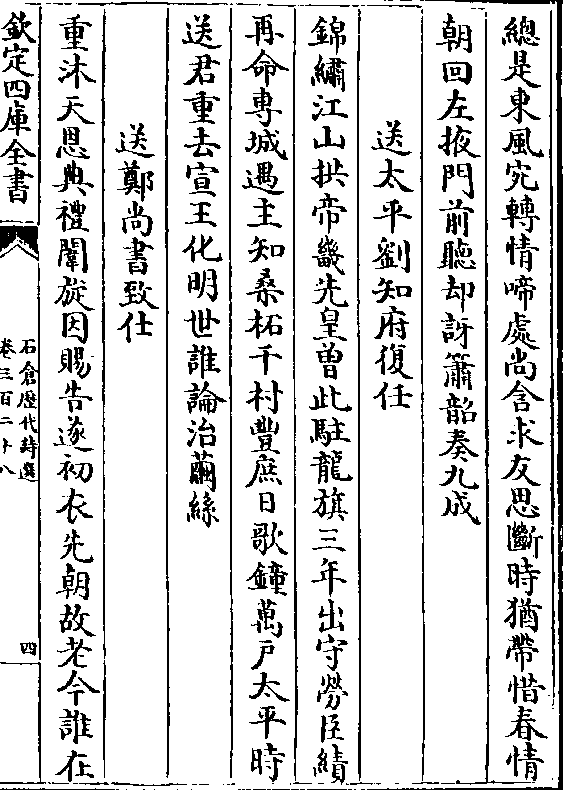 總是東風宛轉情啼處尚含求友思斷時猶帶惜春情
朝回左掖門前聽却訝簫韶奏九成
送太平劉知府復任
錦繡江山拱帝畿先皇曽此駐龍旗三年出守勞臣績
再命專城遇主知桑柘千村豐庶日歌鐘萬戸太平時
送君重去宣王化明世誰論治繭絲
送鄭尚書致仕
重沐天恩典禮闈旋因賜告遂初衣先朝故老今誰在
欽定四庫全書
石倉歴代詩選
卷三百二十八
四